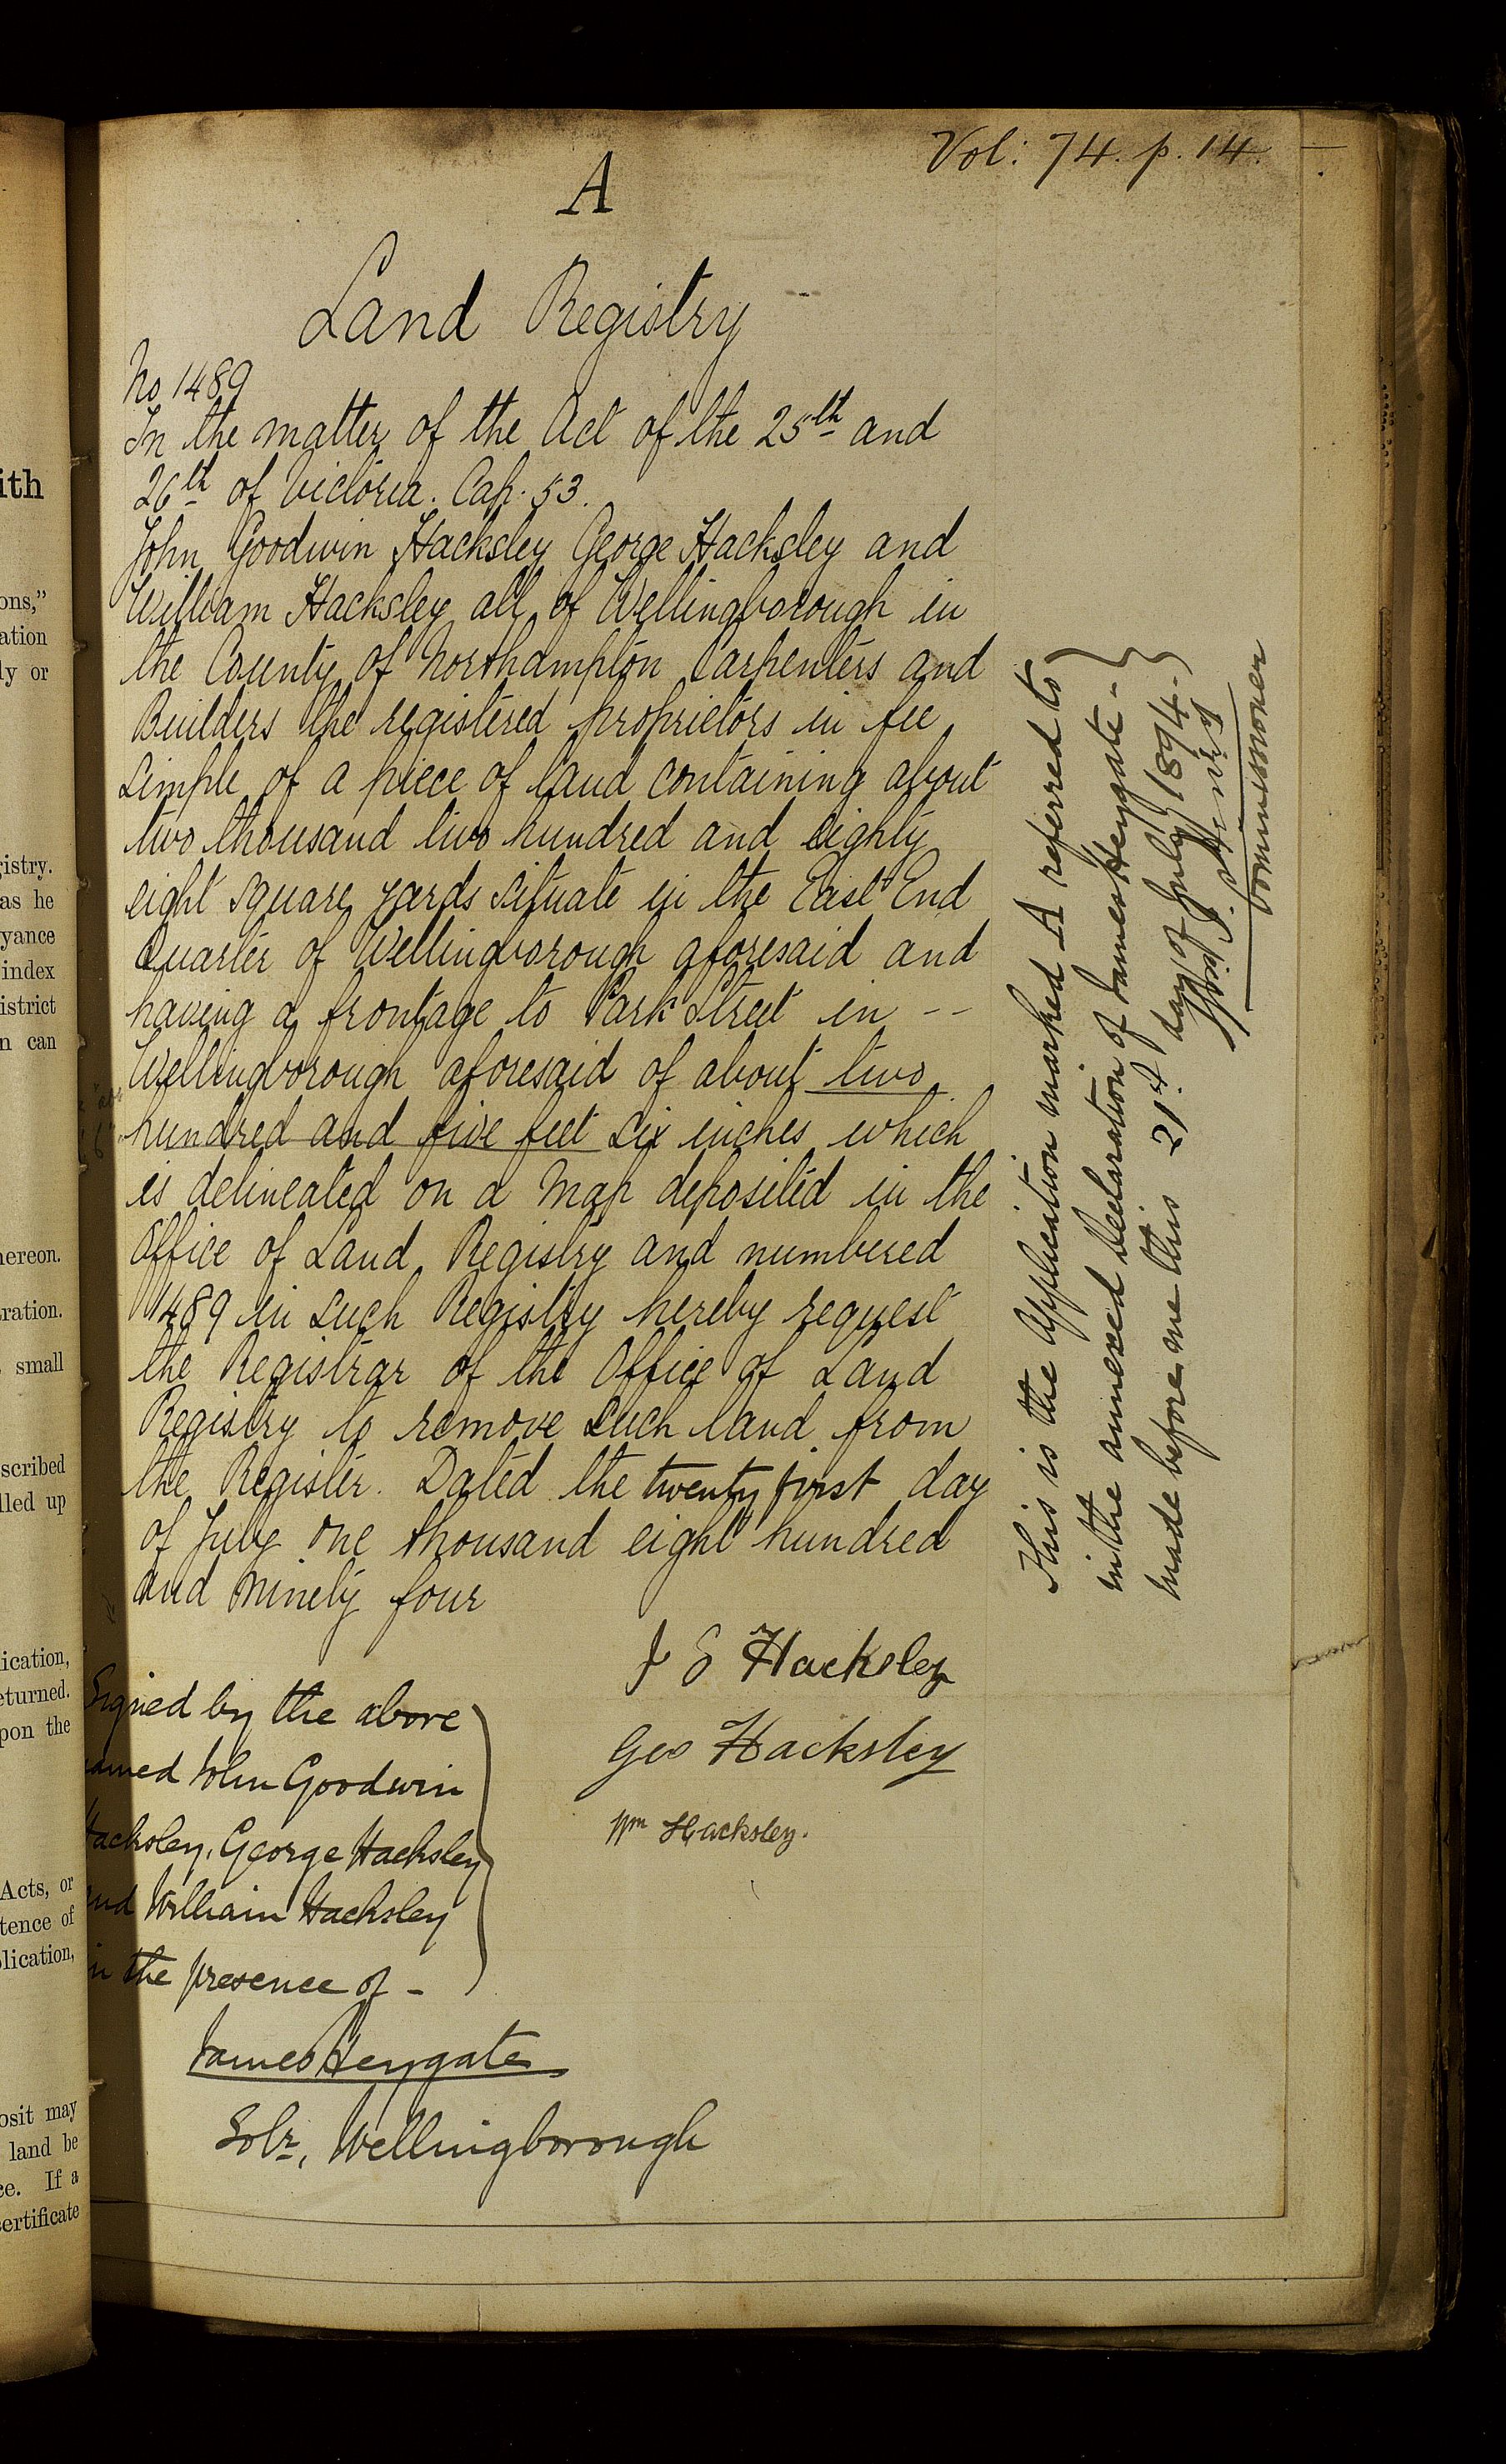 Vol: 74. p. 14.
A
Land Registry
No 1489
In the matter of the Act of the 25th and
26th of Victoria. Cap. 53.
John Goodwin Hacksley George Hacksley and
William Hacksley all of Wellingborough in
the County of Northampton Carpenters and
Builders the registered proprietors in fee
simple of a piece of land containing about
two thousand two hundred and eighty
eight square yards situate in the East End
Quarter of Wellingborough aforesaid and
having a frontage to Park Street in --
Wellingborough aforesaid of about two
hundred and five feet six inches which
is delineated on a Map deposited in the
Office of Land Registry and numbered
1489 in such Registry hereby request
the Registrar of the Office of Land
Registry to remove such land from
the Register. Dated the twenty first day
of July one thousand eight hundred
and ninety four
J G Hacksley
Geo Hacksley
Wm Hacksley.
Signed by the above
named John Goodwin
Hacksley, George Hacksley
and William Hacksley
in the presence of -
James Heygate
Solr, Wellingborough
This is the Application marked A referred to
in the annexed Declaration of James Heygate -
made before me this 21st day of July 1894 -
Commissioner
ith
ons,"
ation
ly or
istry.
as he
yance
index
istrict
n can
hereon.
ration.
small
scribed
lled up
ication,
eturned.
pon the
Acts, or
tence of
plication,
osit may
land be
ce. If a
ertificate